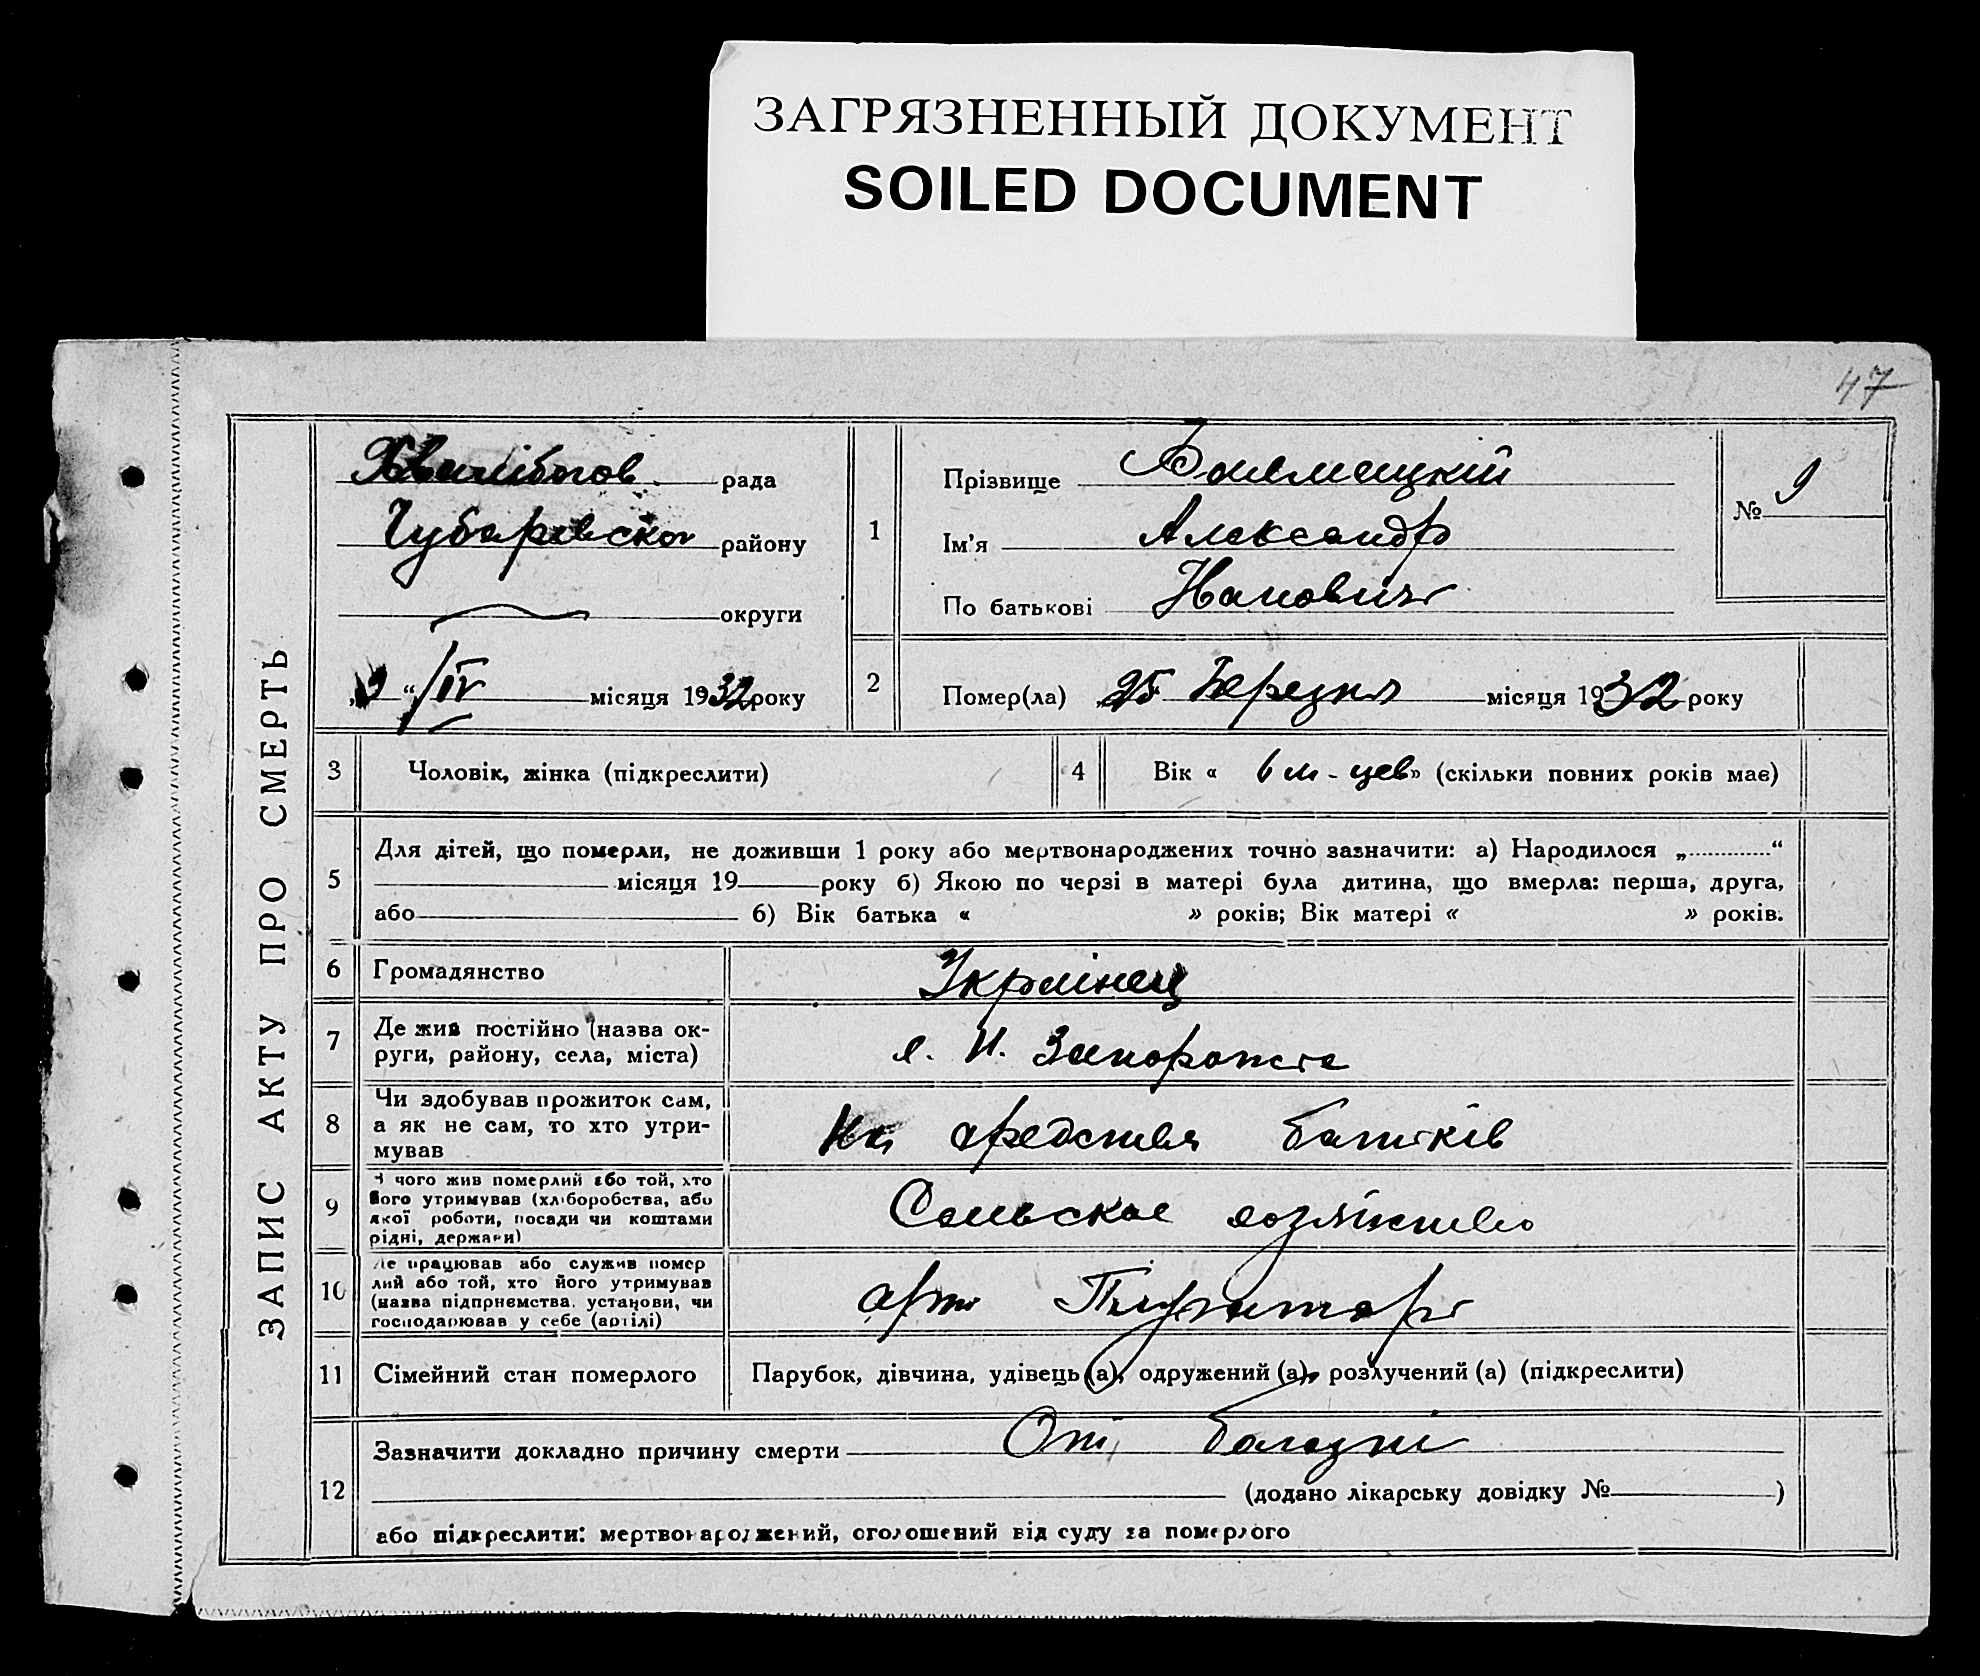 ЗАГРЯЗНЕННЫЙ ДОКУМЕНТ
SOILED DOCUMENT
47
ЗАПИС АКТУ ПРО СМЕРТЬ
рада
Чубаревског району
округи
„9“ /IV місяця 1932 року
1
Прізвище
Ім'я Александр
По батькові
№ 9
2
Помер(ла) „25 Березня місяця 1932 року
3
Чоловік, жінка (підкреслити)
4
Вік « 6 м-цев» (скільки повних років має)
5
Для дітей, що померли, не доживши 1 року або мертвонароджених точно зазначити: а) Народилося „ “
місяця 19 року б) Якою по черзі в матері була дитина, що вмерла: перша, друга,
або б) Вік батька « » років; Вік матері « » років.
6
Громадянство
Українец
7
Де жив постійно (назва ок-
руги, району, села, міста)
с. Н. Запорожте
8
Чи здобував прожиток сам,
а як не сам, то хто утри-
мував
На средствія батьків
9
З чого жив померлий або той, хто
його утримував (хліборобства, або
якої роботи, посади чи коштами
рідні, держави)
Сельское хозяйство
10
Де працював або служив помер
лий або той, хто його утримував
(назва підприємства, установи, чи
господарював у себе (артілі)
арт
11
Сімейний стан померлого
Парубок, дівчина, удівець (а), одружений (а), розлучений (а) (підкреслити)
12
Зазначити докладно причину смерти От болезні
(додано лікарську довідку № )
або підкреслити: мертвонароджений, оголошений від суду за померлого